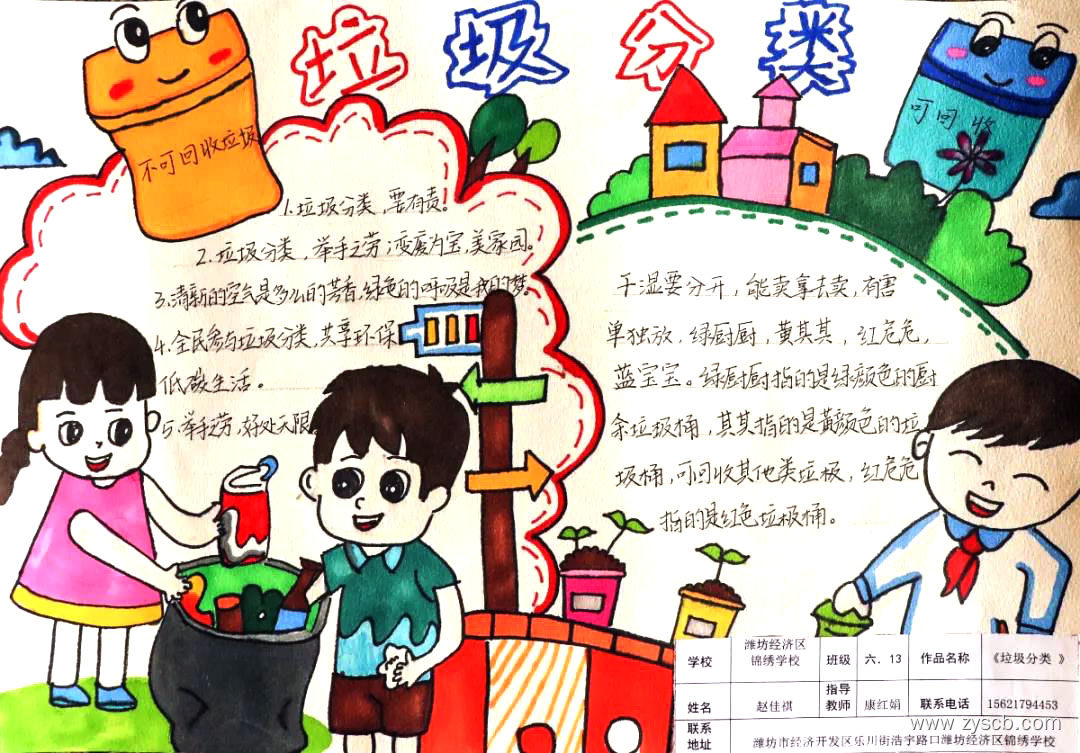 垃圾分类
不可回收垃圾
可回收
1.垃圾分类,要有责。
2.垃圾分类,举手之劳;变废为宝,美家园。
3.清新的空气是多么的芳香,绿色的呼吸是我的梦。
4.全民参与垃圾分类,共享环保
低碳生活。
5.举手之劳,好处无限
干湿要分开,能卖拿去卖,有害
单独放,绿厨厨,黄其其,红危危,
蓝宝宝。绿厨厨指的是绿颜色的厨
余垃圾桶,其其指的是黄颜色的垃
圾桶,可回收其他类垃极,红危危
指的是红色垃极桶。
学校 潍坊经济区锦绣学校 班级 六.13 作品名称 《垃圾分类 》
姓名 赵佳祺 指导教师 康红娟 联系电话 15621794453
联系地址 潍坊市经济开发区乐川街浩宇路口潍坊经济区锦绣学校
www.zyscb.com